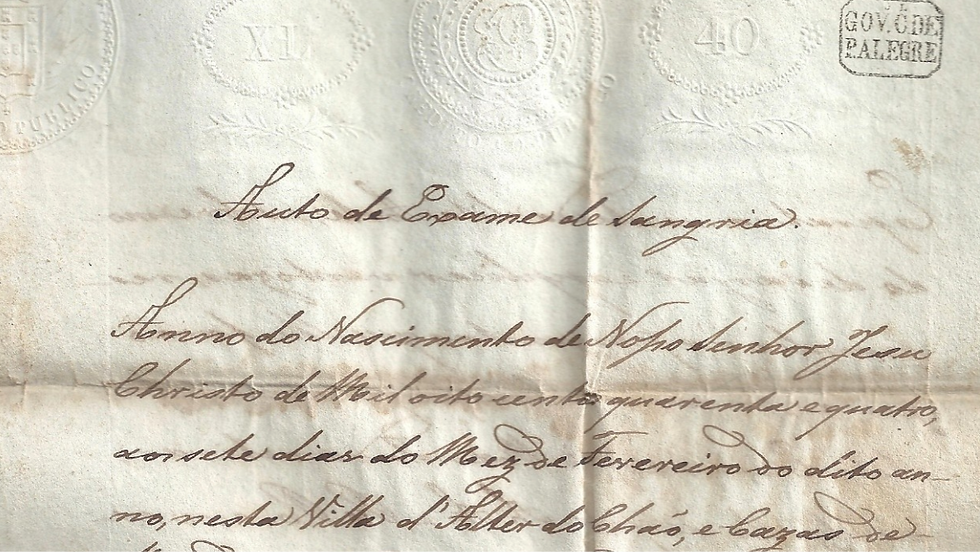 PUBLICO
XL
40
GOV. C. DE
P.ALEGRE
Auto de Exame de Sangria.
Anno do Nascimento de Nosso Senhor Jesu
Christo de Mil oito cento quarenta e quatro,
aos sete dias do Mez de Fevereiro do dito an-
no, nesta Villa d'Alter do Chaõ, e Cazas de